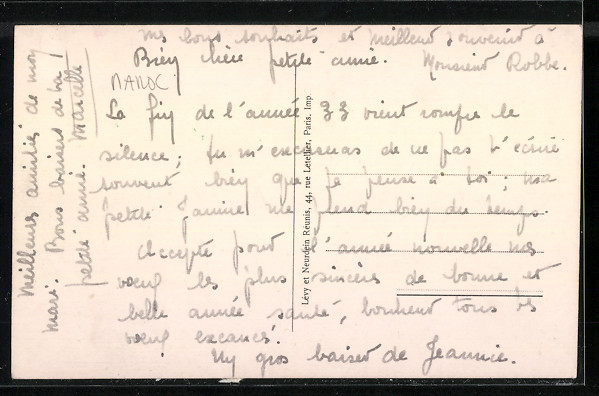 mes bons souhaits et meilleur souvenir à
Monsieur Robbe.
Bien chère petite amie.
MAROC
La fin de l'année 33 vient rompre le
silence; tu m'excuseras de ne pas t'écrire
souvent bien que je pense à toi; ma
petite Janine me prend bien du temps.
Accepte pour l'année nouvelle mes
vœux les plus sincères de bonne et
belle année santé, bonheur tous tes
vœux exaucés.
Un gros baiser de Jeannie.
Meilleures amitiés de mon
mari. Bons baisers de ta
petite amie. Marcelle
Lévy et Neurdein Réunis, 44, rue Letellier, Paris, Imp